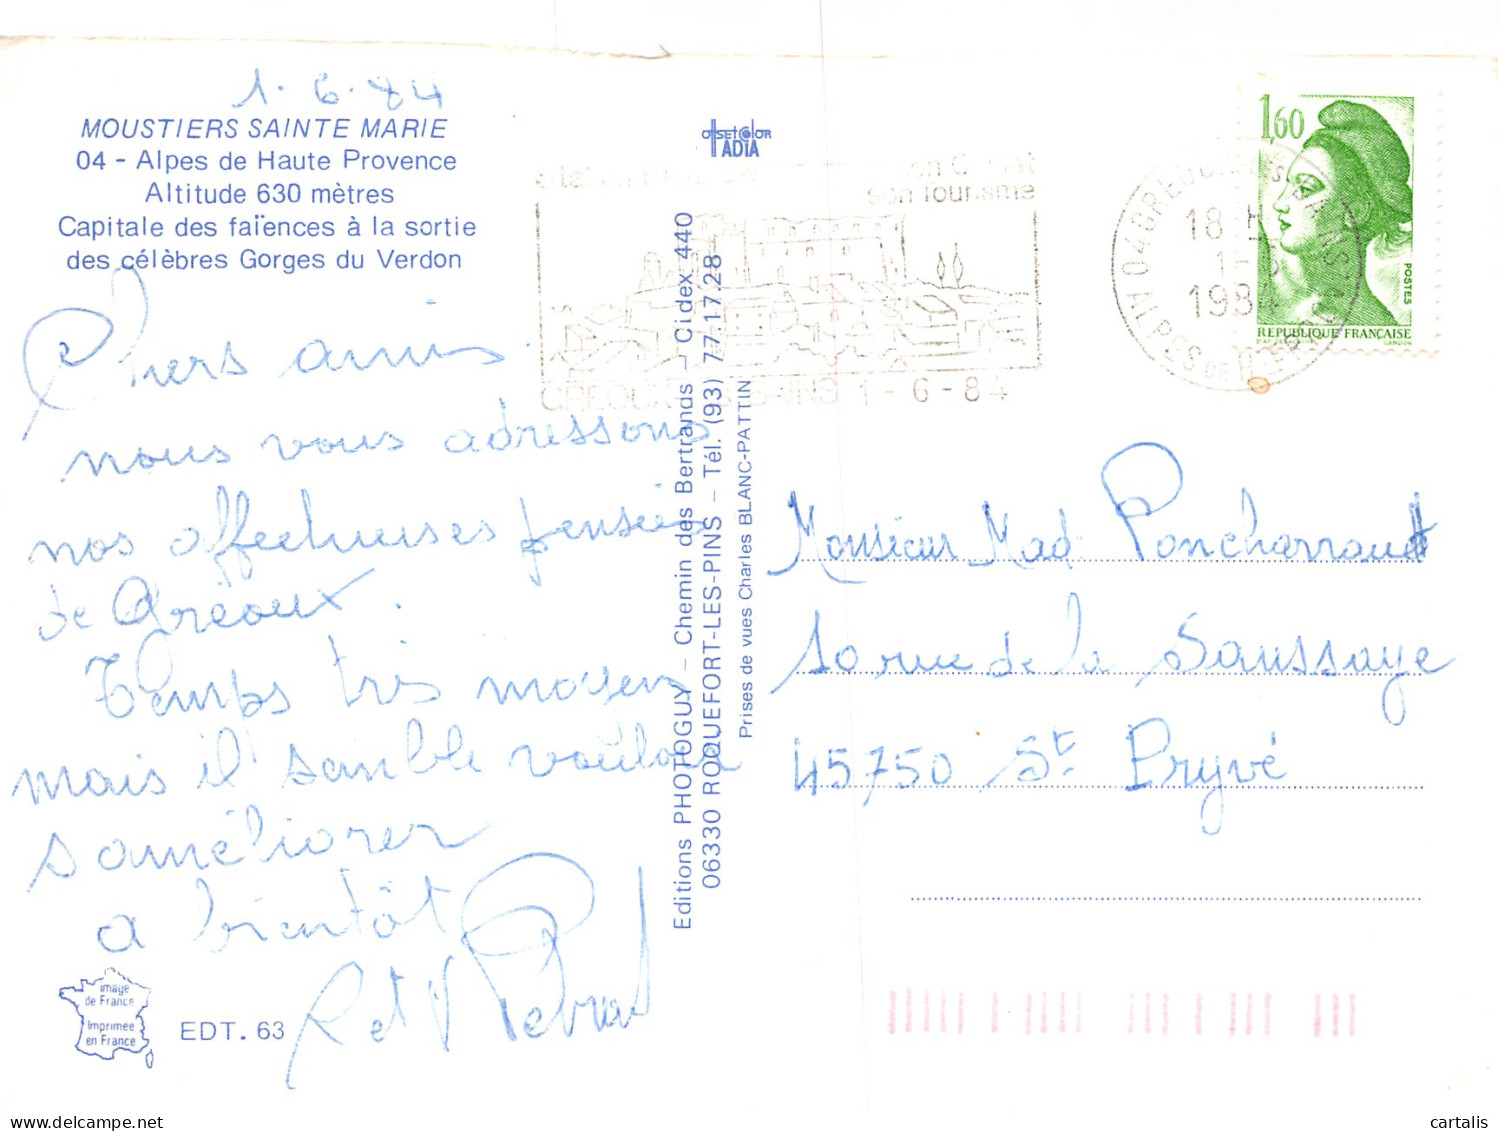 1.6.84
MOUSTIERS SAINTE MARIE
04 - Alpes de Haute Provence
Altitude 630 mètres
Capitale des faïences à la sortie
des célèbres Gorges du Verdon
Chers amis
nous vous adressons
nos affectueuses pensées
de Gréoux.
Temps très moyen
mais il semble vouloir
s'améliorer
a bientôt
R et
image
de France
Imprimée
en France
EDT. 63
OFFSET COLOR
ADIA
Editions PHOTOGUY - Chemin des Bertrands - Cidex 440
06330 ROQUEFORT-LES-PINS - Tél. (93) 77.17.28
Prises de vues Charles BLANC-PATTIN
son Tourisme
GREOUX BAINS 1-6-84
04 GREOUX les BAINS
18 H
1-6
1984
ALPES DE HTE
1,60
POSTES
REPUBLIQUE FRANÇAISE
GANDON
Monsieur Mad Poncharraud
10 rue de la Saussaye
45750 St Pryvé
cartalis
delcampe.net